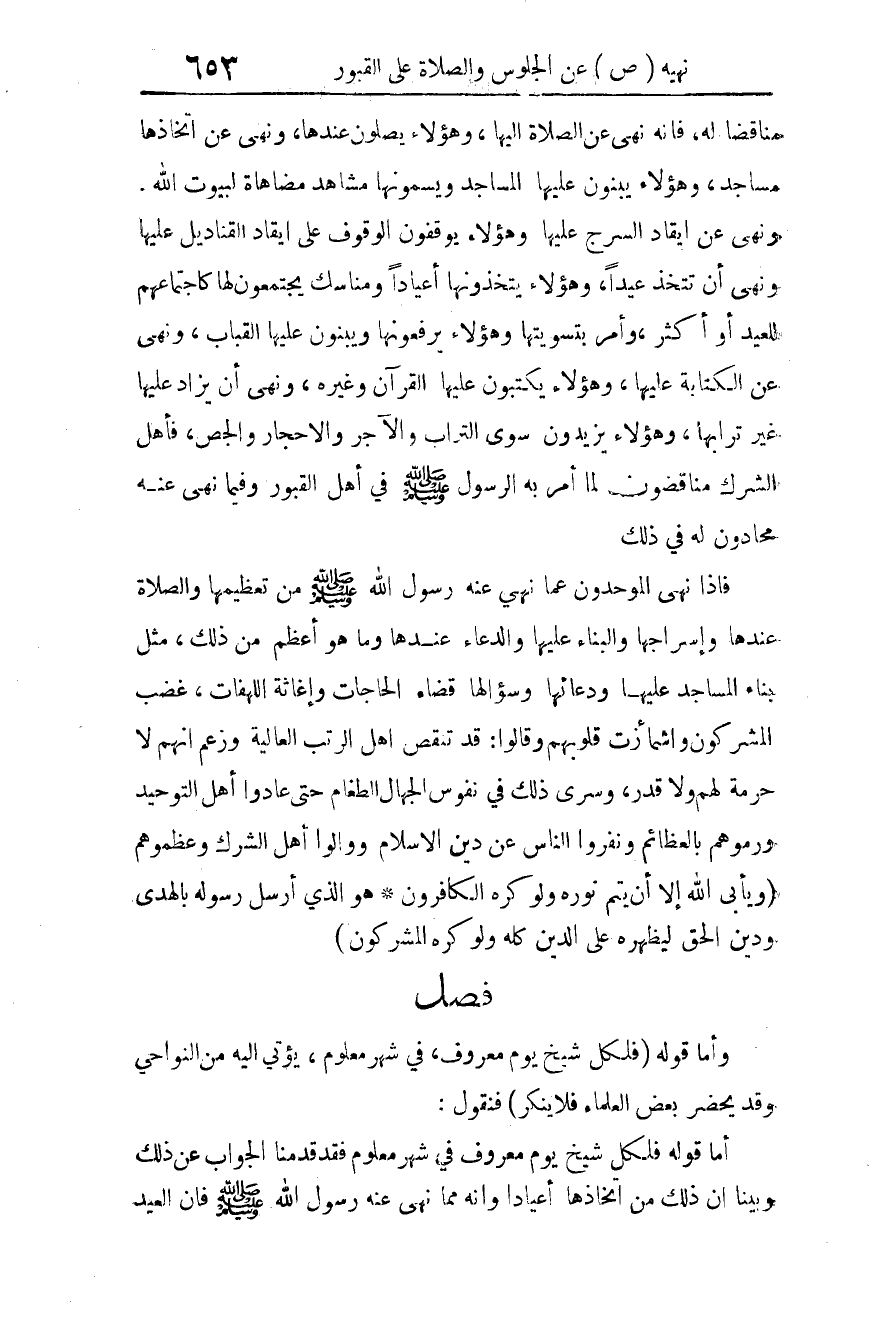 نهيه ( ص ) عن الجلوس والصلاة على القبور ٦٥٣
مناقضا له، فانه نهى عن الصلاة اليها ، وهؤلاء يصلون عندها، ونهى عن اتخاذها
مساجد ، وهؤلاء يبنون عليها المساجد ويسمونها مشاهد مضاهاة لبيوت الله .
ونهى عن ايقاد السرج عليها وهؤلاء يوقفون الوقوف على ايقاد القناديل عليها
ونهى أن تتخذ عيداً، وهؤلاء يتخذونها أعياداً ومناسك يجتمعون لها كاجتماعهم
للعيد أو أكثر ،وأمر بتسويتها وهؤلاء يرفعونها ويبنون عليها القباب ، ونهى
عن الكتابة عليها ، وهؤلاء يكتبون عليها القرآن وغيره ، ونهى أن يزاد عليها
غير ترابها ، وهؤلاء يزيدون سوى التراب والآجر والاحجار والجص، فأهل
الشرك مناقضون لما أمر به الرسول ﷺ في أهل القبور وفيما نهى عنه
محادون له في ذلك
فاذا نهى الموحدون عما نهي عنه رسول الله ﷺ من تعظيمها والصلاة
عندها وإسراجها والبناء عليها والدعاء عندها وما هو أعظم من ذلك ، مثل
بناء المساجد عليها ودعائها وسؤالها قضاء الحاجات وإغاثة اللهفات ، غضب
المشركون واشمأزت قلوبهم وقالوا: قد تنقص اهل الرتب العالية وزعم انهم لا
حرمة لهم ولا قدر، وسرى ذلك في نفوس الجهال الطغام حتى عادوا أهل التوحيد
ورموهم بالعظائم ونفروا الناس عن دين الاسلام ووالوا أهل الشرك وعظموهم
(ويأبى الله إلا أن يتم نوره ولو كره الكافرون * هو الذي أرسل رسوله بالهدى
ودين الحق ليظهره على الدين كله ولو كره المشركون)
فصل
وأما قوله (فلكل شيخ يوم معروف، في شهر معلوم ، يؤتي اليه من النواحي
وقد يحضر بعض العلماء فلا ينكر) فنقول :
أما قوله فلكل شيخ يوم معروف في شهر معلوم فقد قدمنا الجواب عن ذلك
وبينا ان ذلك من اتخاذها أعيادا وانه مما نهى عنه رسول الله ﷺ فان العيد